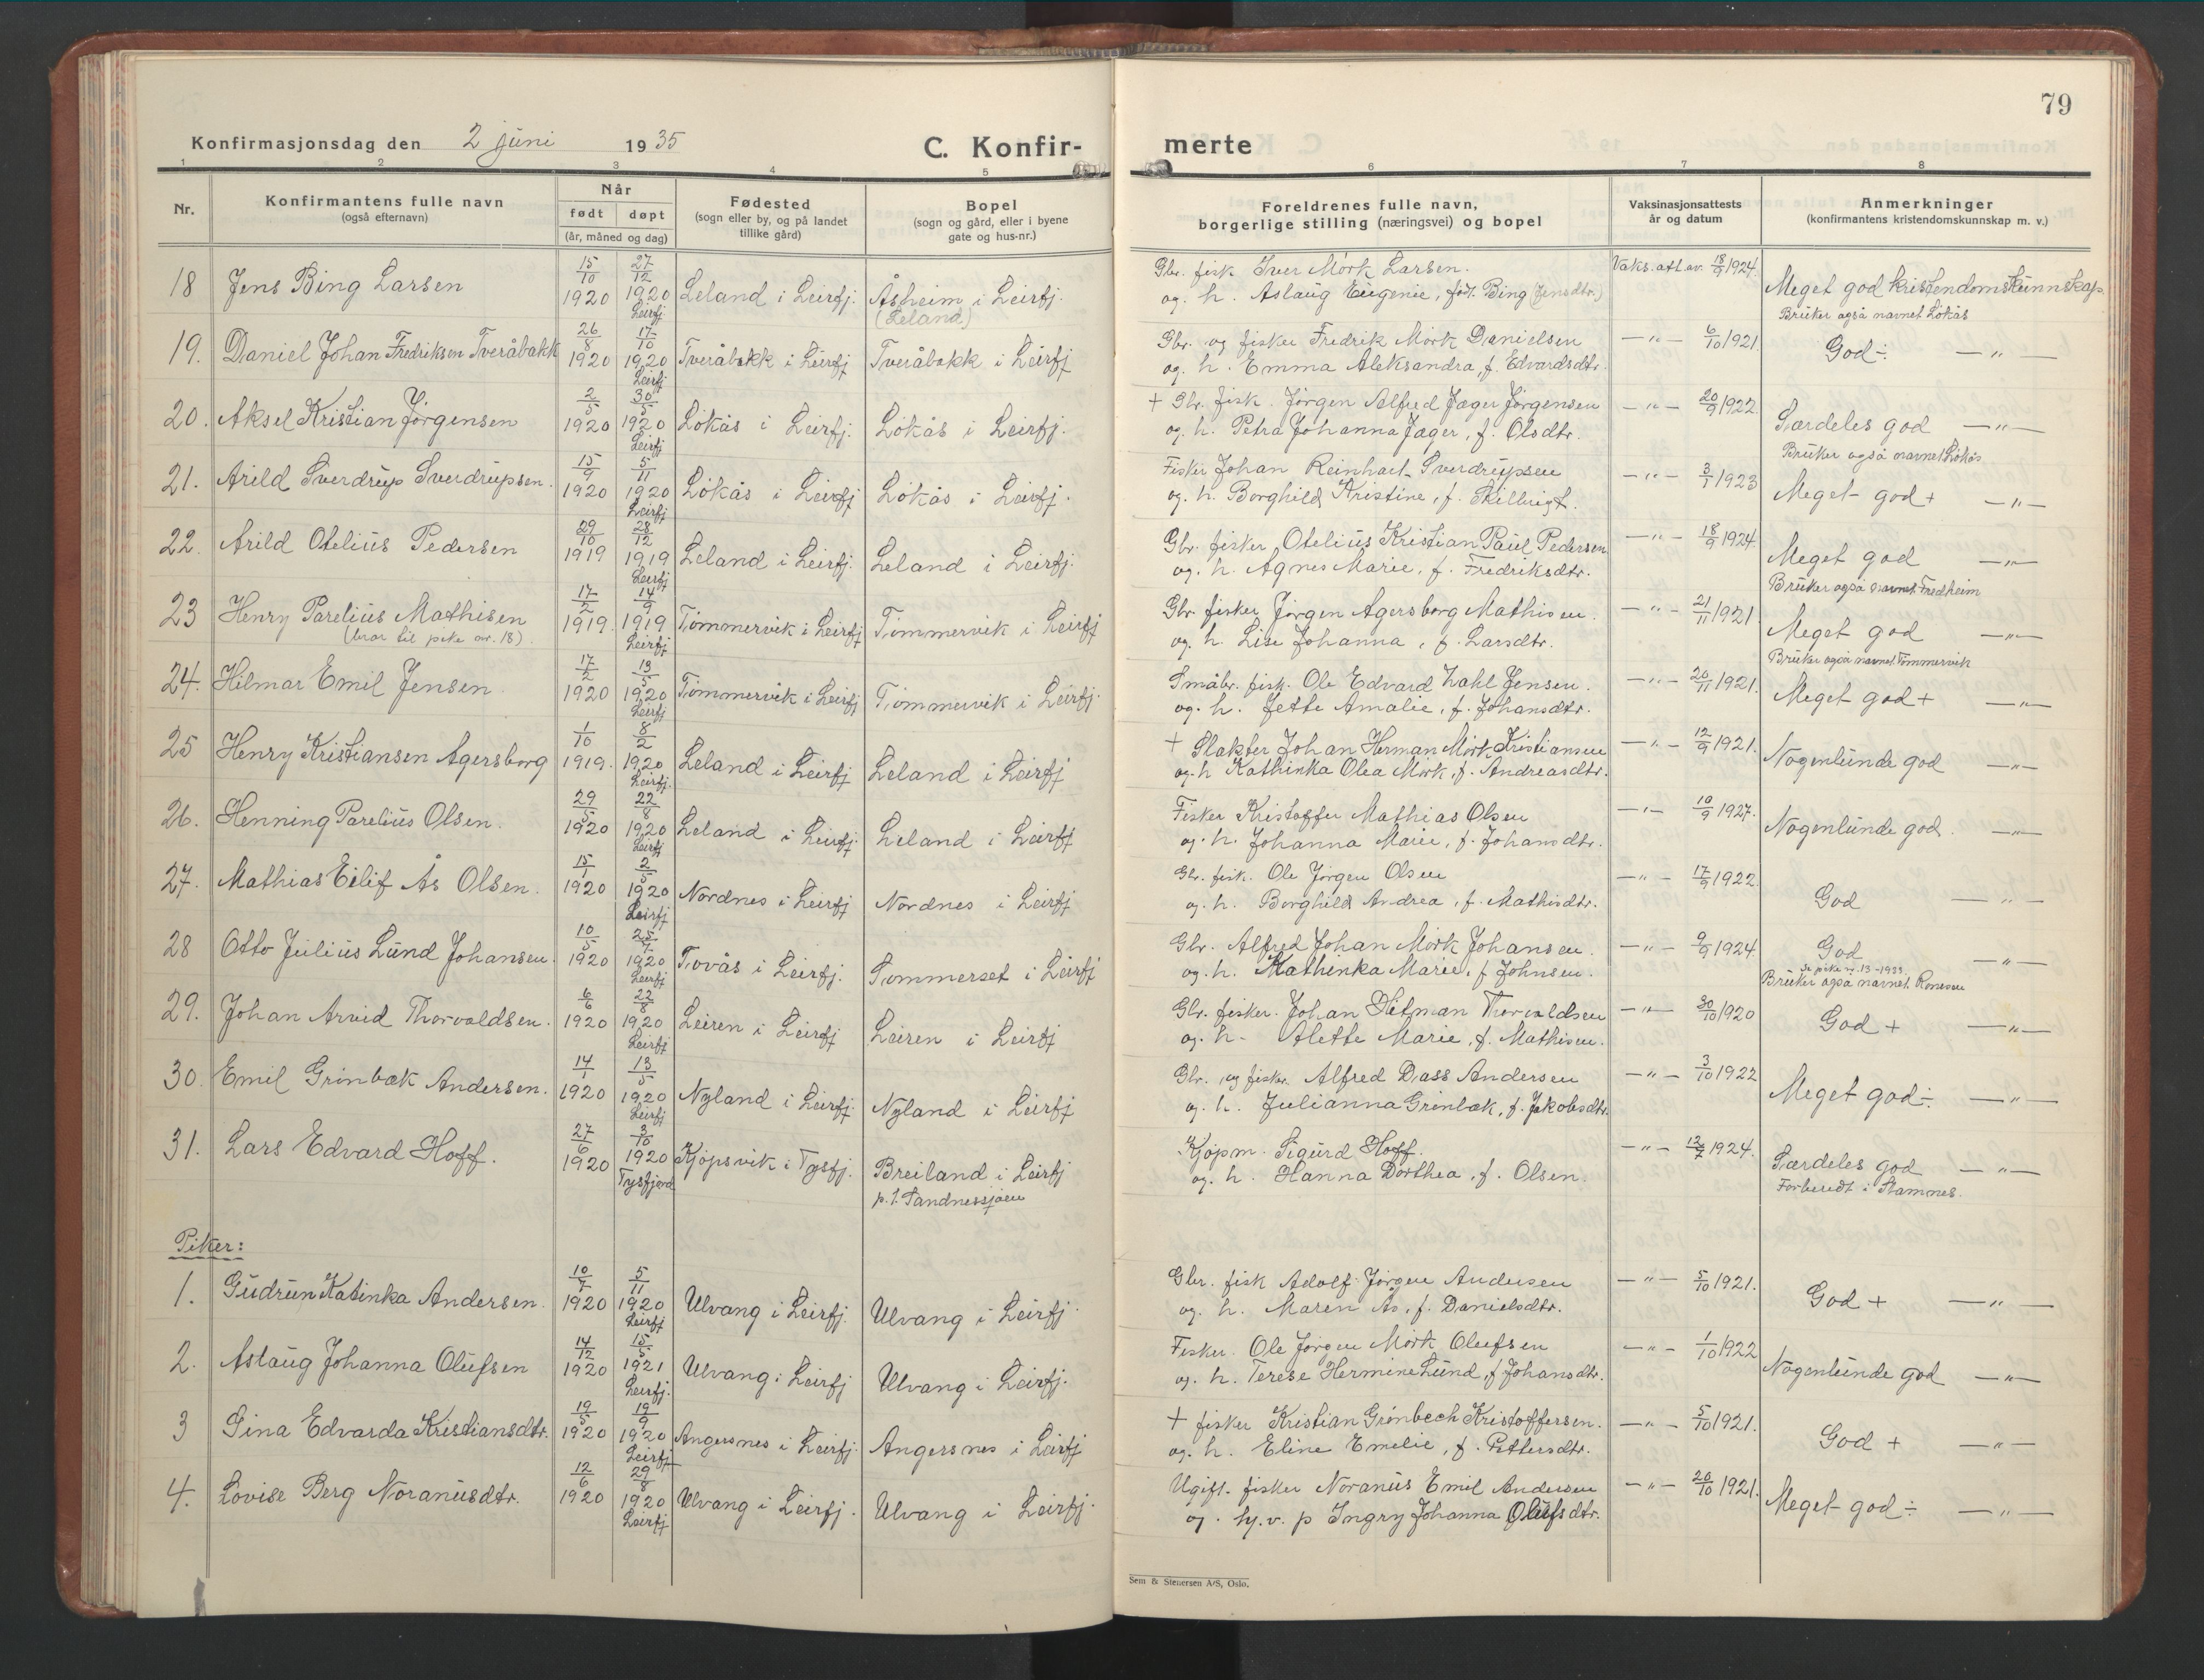 79
Konfirmasjonsdag den 2 juni 1935 C. Konfirmerte
1 2 3 4 5 6 7 8
Nr.
Konfirmantens fulle navn
(også efternavn)
Når
født døpt
(år, måned og dag)
Fødested
(sogn eller by, og på landet
tillike gård)
Bopel
(sogn og gård, eller i byene
gate og hus-nr.)
Foreldrenes fulle navn,
borgerlige stilling (næringsvei) og bopel
Vaksinasjonsattests
år og datum
Anmerkninger
(konfirmantens kristendomskunnskap m. v.)
18 Jens Bing Larsen 15/10 1920 27/12 1920 Leirfj. Leland i Leirfj. Åsheim i Leirfj. (Leland)
Gbr. fisk Iver Mörk Larsen.
og. h. Aslaug Eugenie, født. Bing (Jensdtr.)
Vaks. att. av. 18/9 1924. Meget god kristendomskunnskap
19. Daniel Johan Fredriksen Tveråbakk 26/8 1920 17/10 1920 Leirfj Tveråbakk i Leirfj Tveråbakk i Leirfj
Gbr. og fisker Fredrik Mörk Danielsen
og. h. Emma Aleksandra, f. Edvardsdtr.
—"— 6/10 1921. God ÷ —"—
Bruker også navnet Lökås
20. Aksel Kristian Jörgensen 2/5 1920 30/5 1920 Leirfj Lökås i Leirfj. Lökås i Leirfj.
+ Gbr. fisk. Jörgen Alfred Jæger Jörgensen
og. h. Petra Johanna Jæger, f. Olsdtr.
—"— 20/9 1922. Særdeles god —"—
Bruker også navnet Lökås
21. Arild Sverdrup Sverdrupsen. 15/9 1920 5/11 1920 Leirfj Lökås i Leirfj Lökås i Leirfj.
Fisker Johan Reinhart Sverdrupsen
og. h. Borghild Kristine, f. Skillingt.
—"— 3/1 1923 Meget god + —"—
22. Arild Otelius Pedersen 29/10 1919 28/12 1919 Leirfj Leland i Leirfj. Leland i Leirfj.
Gbr. fisker Otelius Kristian Paul Pedersen
og. h. Agnes Marie, f. Fredriksdtr.
—"— 18/9 1924. Meget god —"—
Bruker også navnet Fredheim
23 Henry Parelius Mathisen (bror til pike nr. 18) 17/2 1919. 14/9 1919 Leirfj Tömmervik i Leirfj Tömmervik i Leirfj
Gbr. fisker Jörgen Agersborg Mathisen.
og. h. Lise Johanna, f. Larsdtr.
—"— 21/11 1921. Meget god —"—
Bruker også navnet Tömmervik
24. Hilmar Emil Jensen 17/2 1920 13/5 1920 Leirfj Tömmervik i Leirfj Tömmervik i Leirfj.
Småbr. fisk. Ole Edvard Zahl Jensen.
og. h. Jette Amalie, f. Johansdtr.
—"— 20/11 1921. Meget god + —"—
25 Henry Kristiansen Agersborg 1/10 1919. 8/2 1920 Leirfj. Leland i Leirfj Leland i Leirfj
+ Slakter Johan Herman Mörk Kristiansen
og. h Kathinka Olea Mörk, f. Andreasdtr.
—"— 12/9 1921. Nogenlunde god —"—
26. Henning Parelius Olsen. 29/5 1920 22/8 1920 Leirfj Leland i Leirfj. Leland i Leirfj
Fisker Kristoffer Mathias Olsen
og. h. Johanna Marie, f. Johansdtr.
—"— 10/9 1927. Nogenlunde god. —"—
27. Mathias Eilif Ås Olsen. 15/1 1920 2/5 1920 Leirfj Nordnes i Leirfj Nordnes i Leirfj
Gbr. fisk. Ole Jörgen Olsen
og. h. Borghild Andrea, f. Mathisdtr.
—"— 17/9 1922. God —"—
28 Otto Julius Lund Johansen. 10/5 1920 25/7 1920 Leirfj Tovås i Leirfj. Tommerset i Leirfj
Gbr. Alfred Johan Mörk Johansen.
og. h. Kathinka Marie, f Johnsen.
—"— 9/9 1924. God —"—
Se pike nr. 13 - 1933.
Bruker også navnet Ronesen
29. Johan Arvid Thorvaldsen. 6/6 1920 22/8 1920 Leirfj Leiren i Leirfj Leiren i Leirfj
Gbr. fisker. Johan Hilman Thorvaldsen
og. h. Alette Marie, f. Mathisen.
—"— 30/10 1920 God + —"—
30. Emil Grönbæk Andersen. 14/1 1920 13/5 1920 Leirfj Nyland i Leirfj. Nyland i Leirfj
Gbr. og fisker. Alfred Dass Andersen
og. h. Julianna Grönbæk, f. Jakobsdtr.
—"— 3/10 1922 Meget god ÷ —"—
31. Lars Edvard Hoff. 27/6 1920 3/10 1920 Tysfjord Kjöpsvik i Tysfj. Breiland i Leirfj p. t. Sandnessjöen
Kjöpm. Sigurd Hoff.
og. h. Hanna Dorthea, f. Olsen.
—"— 12/7 1924. Særdeles god —"—
Forberedt i Stamnes.
Piker:
1. Gudrun Katinka Andersen. 10/7 1920 5/11 1920 Leirfj Ulvang i Leirfj. Ulvang i Leirfj.
Gbr. fisk Adolf Jörgen Andersen
og. h. Maren Ås, f. Danielsdtr.
—"— 5/10 1921. God + —"—
2. Aslaug Johanna Olufsen 14/12 1920 15/5 1921 Leirfj. Ulvang i Leirfj Ulvang i Leirfj.
Fisker. Ole Jörgen Mörk Olufsen
og. h. Terese Hermine Lund, f Johansdtr.
—"— 1/10 1922 Nogenlunde god —"—
3 Gina Edvarda Kristiansdtr. 19/5 1920 19/9 1920 Leirfj Angersnes i Leirfj. Angersnes i Leirfj
+ fisker Kristian Grönbech Kristoffersen.
og. h. Eline Emelie, f. Pettersdtr.
—"— 5/10 1921. God + —"—
4. Lovise Berg Noranusdtr. 12/6 1920 29/8 1920 Leirfj Ulvang i Leirfj. Ulvang i Leirfj.
Ugift. fisker Noranus Emil Andersen
og. hj. v. p Ingry Johanna Olufsdtr.
—"— 20/10 1921. Meget god ÷ —"—
Sem & Stenersen A/S, Oslo.